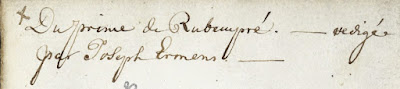 + Du prince de Rubempré. — redigé
par Joseph Ermens. —